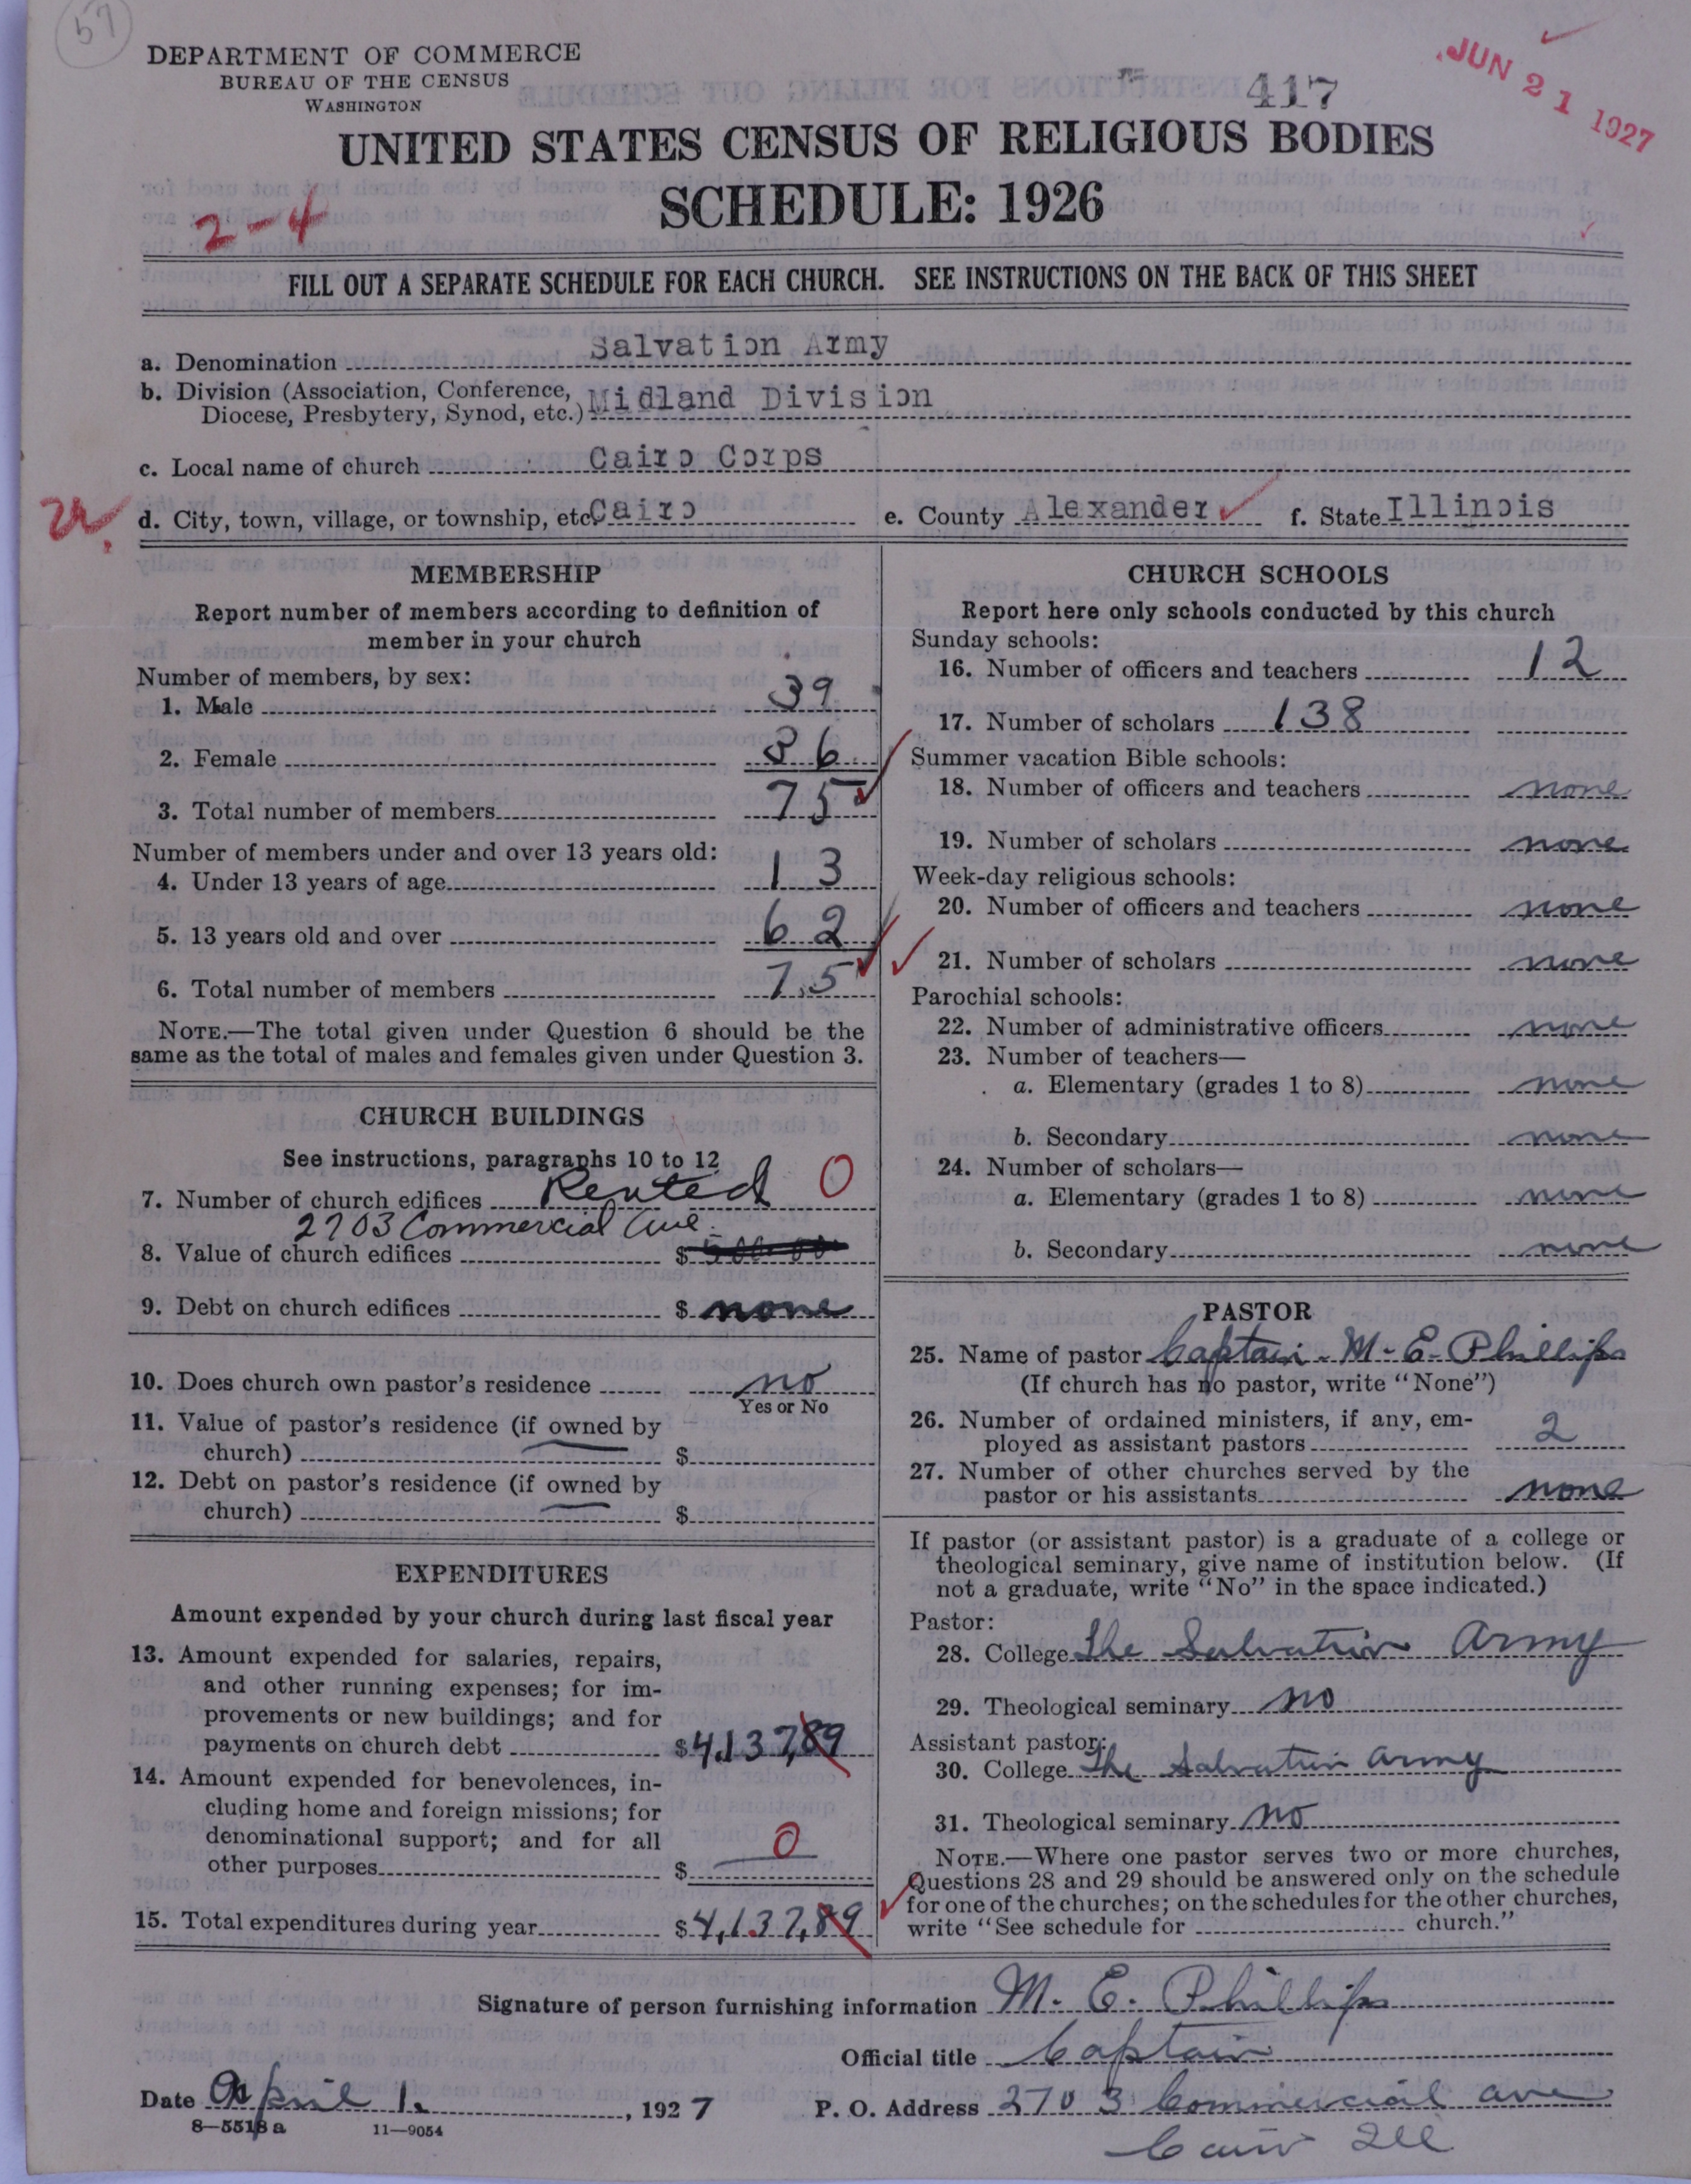 57
DEPARTMENT OF COMMERCE
BUREAU OF THE CENSUS
WASHINGTON
417
JUN 21 1927
UNITED STATES CENSUS OF RELIGIOUS BODIES
SCHEDULE: 1926
2-4
FILL OUT A SEPARATE SCHEDULE FOR EACH CHURCH. SEE INSTRUCTIONS ON THE BACK OF THIS SHEET
a. Denomination Salvation Army
b. Division (Association, Conference, Diocese, Presbytery, Synod, etc.) Midland Division
c. Local name of church Cairo Corps
d. City, town, village, or township, etc. Cairo e. County Alexander f. State Illinois
MEMBERSHIP
Report number of members according to definition of
member in your church
Number of members, by sex:
1. Male 39
2. Female 36
3. Total number of members 75
Number of members under and over 13 years old:
4. Under 13 years of age 13
5. 13 years old and over 62
6. Total number of members 75
NOTE.—The total given under Question 6 should be the
same as the total of males and females given under Question 3.
CHURCH BUILDINGS
See instructions, paragraphs 10 to 12
7. Number of church edifices Rented 0
2703 Commercial Ave.
8. Value of church edifices $
9. Debt on church edifices $ none
10. Does church own pastor's residence no
Yes or No
11. Value of pastor's residence (if owned by
church) $
12. Debt on pastor's residence (if owned by
church) $
EXPENDITURES
Amount expended by your church during last fiscal year
13. Amount expended for salaries, repairs,
and other running expenses; for im-
provements or new buildings; and for
payments on church debt $4,137,89
14. Amount expended for benevolences, in-
cluding home and foreign missions; for
denominational support; and for all
other purposes $ 0
15. Total expenditures during year $4,137,89
CHURCH SCHOOLS
Report here only schools conducted by this church
Sunday schools:
16. Number of officers and teachers 12
17. Number of scholars 138
Summer vacation Bible schools:
18. Number of officers and teachers none
19. Number of scholars none
Week-day religious schools:
20. Number of officers and teachers none
21. Number of scholars none
Parochial schools:
22. Number of administrative officers none
23. Number of teachers—
a. Elementary (grades 1 to 8) none
b. Secondary none
24. Number of scholars—
a. Elementary (grades 1 to 8) none
b. Secondary none
PASTOR
25. Name of pastor Captain M. E. Phillips
(If church has no pastor, write "None")
26. Number of ordained ministers, if any, em-
ployed as assistant pastors 2
27. Number of other churches served by the
pastor or his assistants none
If pastor (or assistant pastor) is a graduate of a college or
theological seminary, give name of institution below. (If
not a graduate, write "No" in the space indicated.)
Pastor:
28. College The Salvation Army
29. Theological seminary no
Assistant pastor:
30. College The Salvation Army
31. Theological seminary no
NOTE.—Where one pastor serves two or more churches,
Questions 28 and 29 should be answered only on the schedule
for one of the churches; on the schedules for the other churches,
write "See schedule for church."
Signature of person furnishing information M. E. Phillips
Official title Captain
Date April 1, 1927 P. O. Address 2703 Commercial ave
8—5518a 11—9054
Cairo Ill